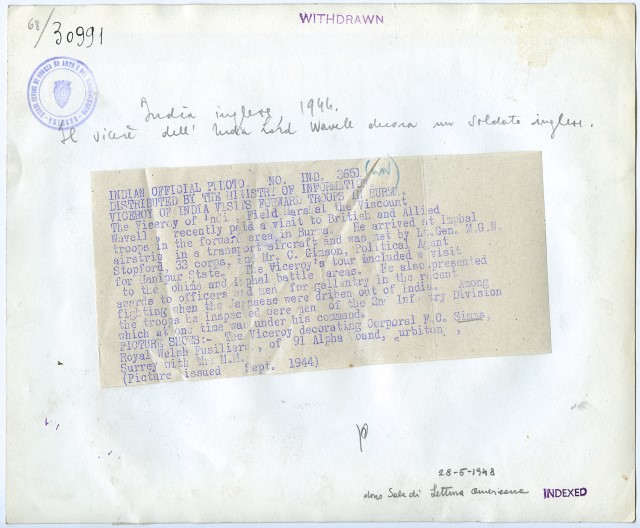 WITHDRAWN
68/30991
India inglese, 1944.
Il vicerè dell' India Lord Wavell decora un soldato inglese.
INDIAN OFFICIAL PHOTO. NO. IND. 3651
DISTRIBUTED BY THE MINISTRY OF INFORMATION
VICEROY OF INDIA VISITS FORWARD TROOPS IN BURMA.
The Viceroy of Indi , Field Marshal the Viscount
Wavell recently paid a visit to British and Allied
troops in the forward area in Burma. He arrived at Imphal
airstrip in a transport aircraft and was met by Lt.Gen. M.G.N.
Stopford, 33 corps, and Mr. C. Gimson, Political Agent
for Manipur State. The Viceroy's tour included a visit
to the Kohima and Imphal battle areas. He also presented
awards to officers and men for gallantry in the recent
fighting when the Japanese were driben out of India. Among
the troops he inspected were men of the 2nd Infantry Division
which at one time was under his command.
PICTURE SHOWS:- The Viceroy decorating Corporal F.G. Simms,
Royal Welsh Fusiliers, of 91 Alpha Road, urbiton ,
Surrey with the M.M.
(Picture issued Sept. 1944)
28-5-1948
dono Sala di Lettura americana
INDEXED